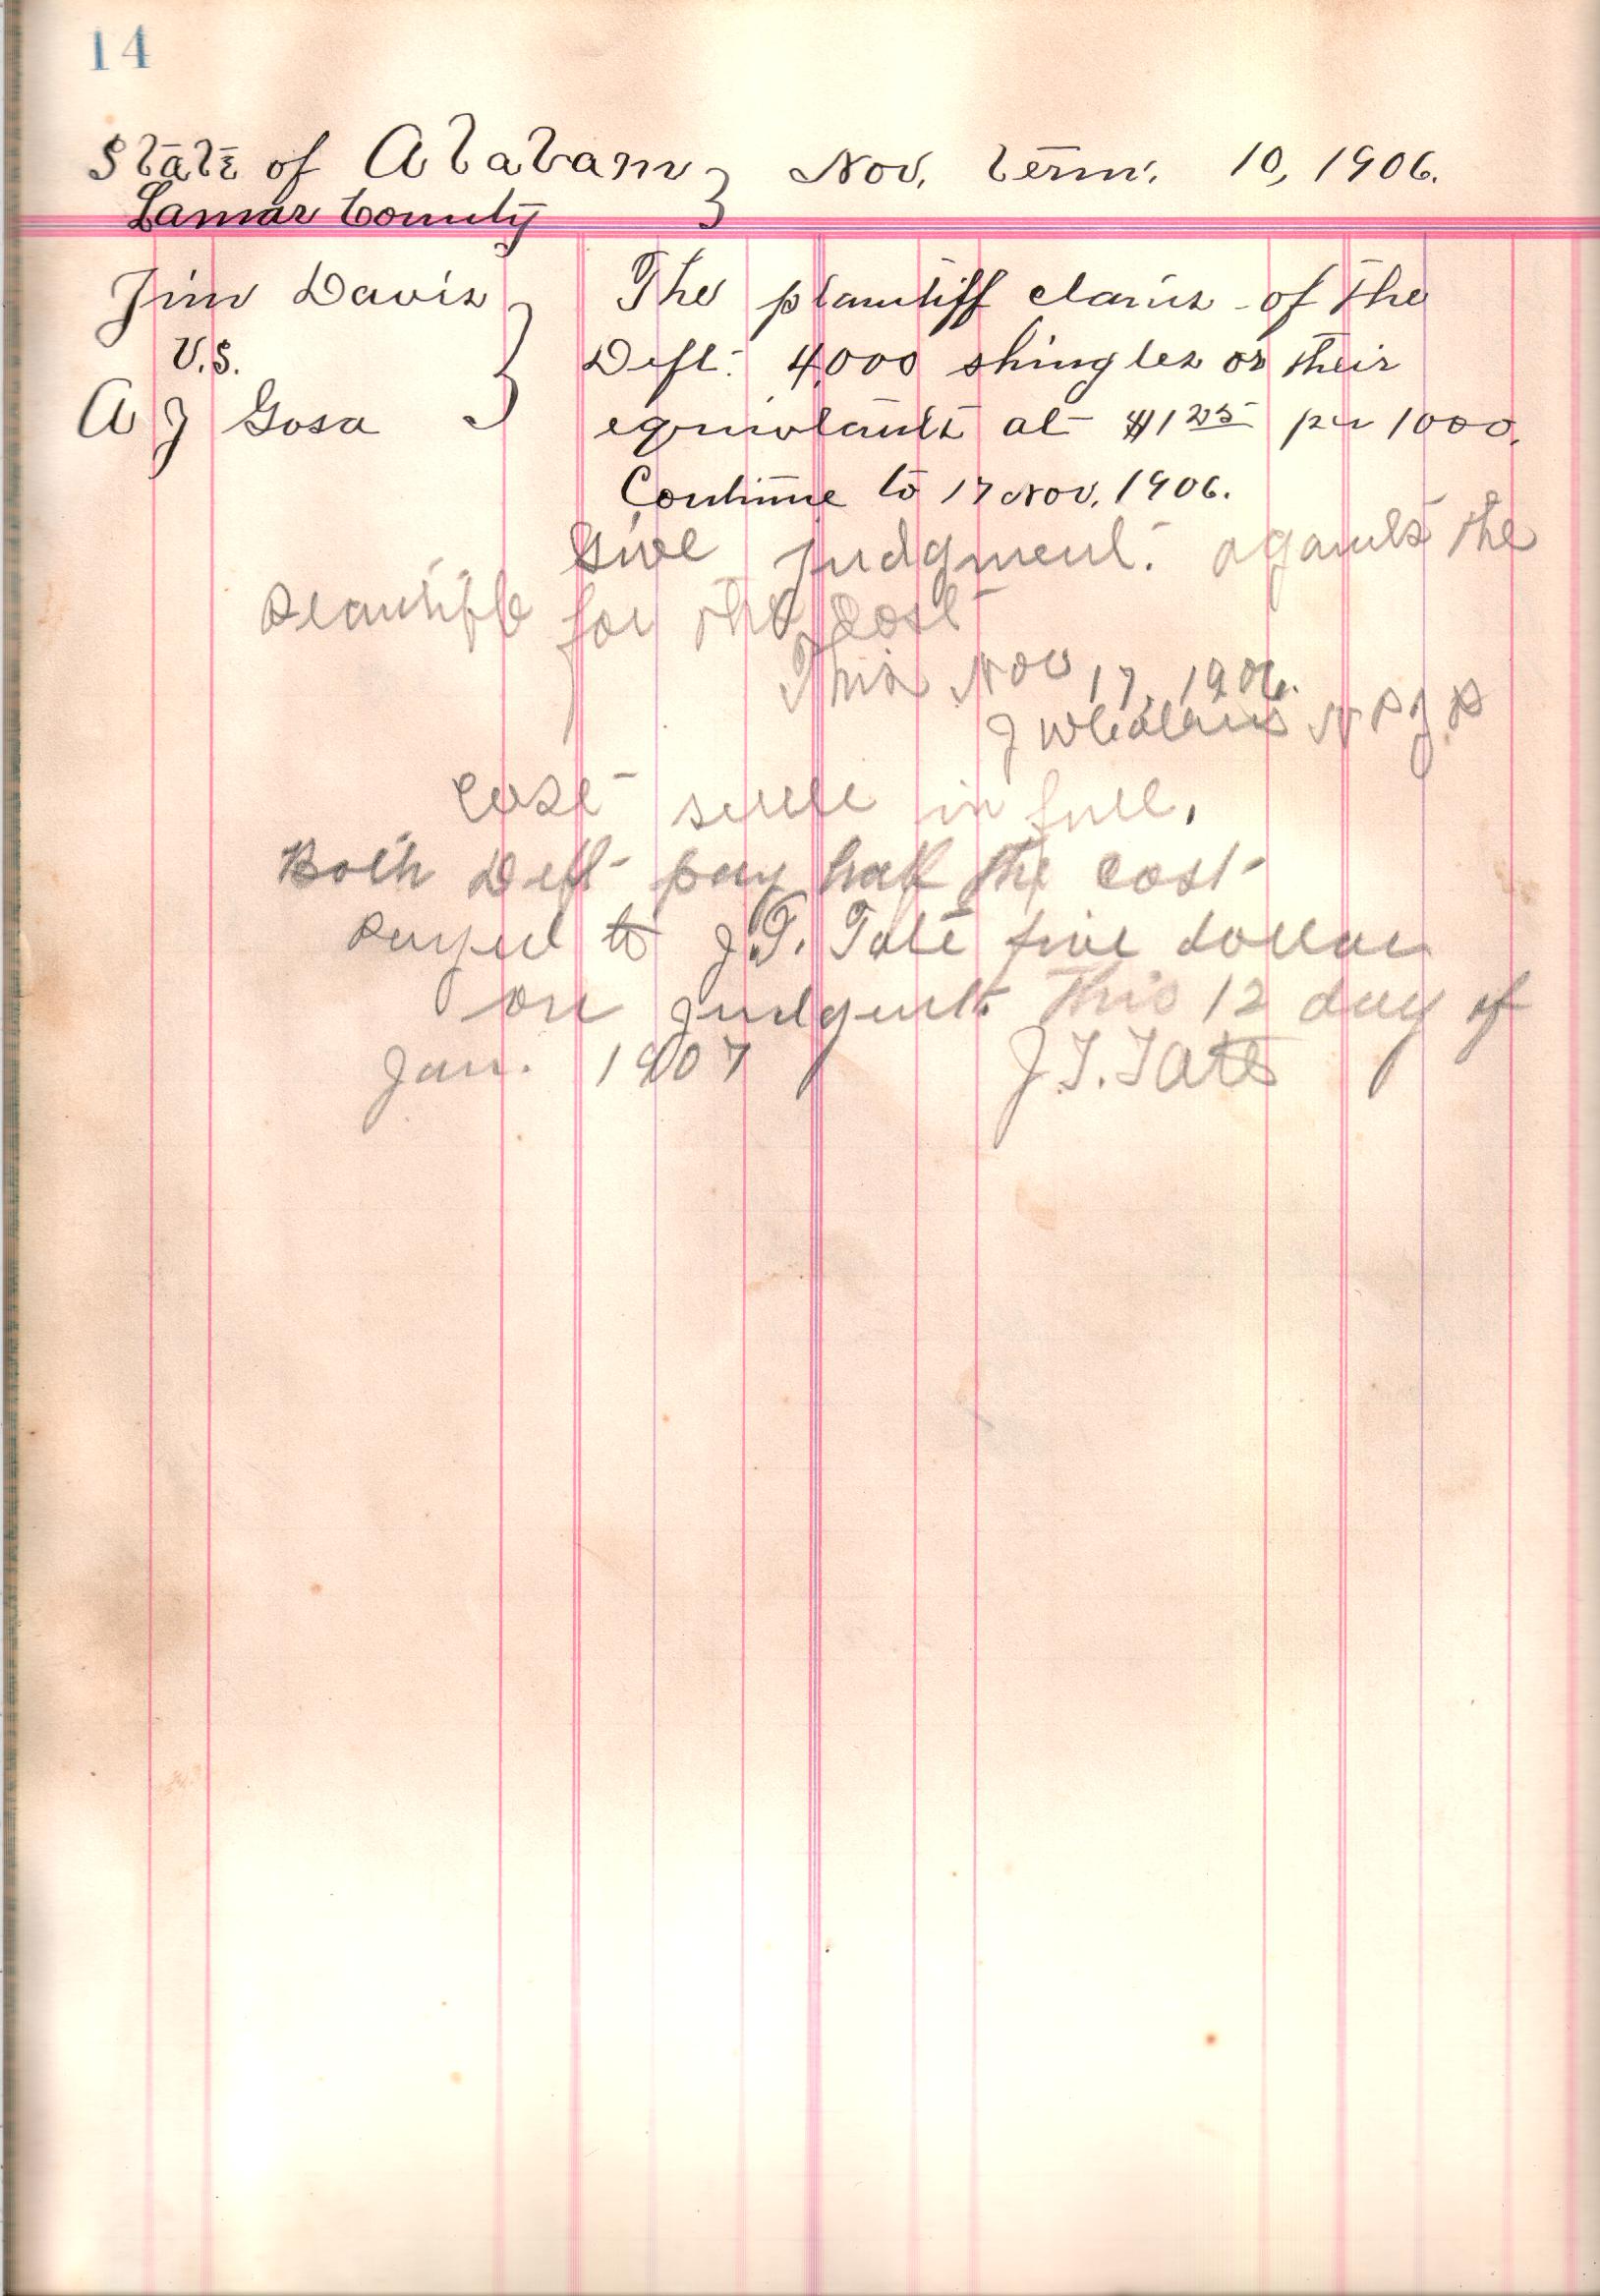 14
State of Alabam } Nov. Term. 10, 1906.
Lamar County
Jim Davis } The plaintiff claims of the
V.S. Deft. 4,000 shingles or their
A J Gosa equivolants at $1 25 per 1000.
Continue to 17 Nov. 1906.
Give judgment. against the
for the Cost
This Nov 17, 1906.
J N P J P
Cost in full,
Both Deft pay half the cost
to J.T. Tate five dollars
on This 12 day of
Jan. 1907 J.T. Tate